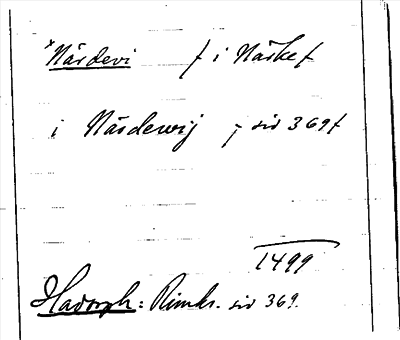 *Närdevi † i Närke †
i Närdewij, sid 369 †
1499
Hadorph: Rimkr. sid 369.